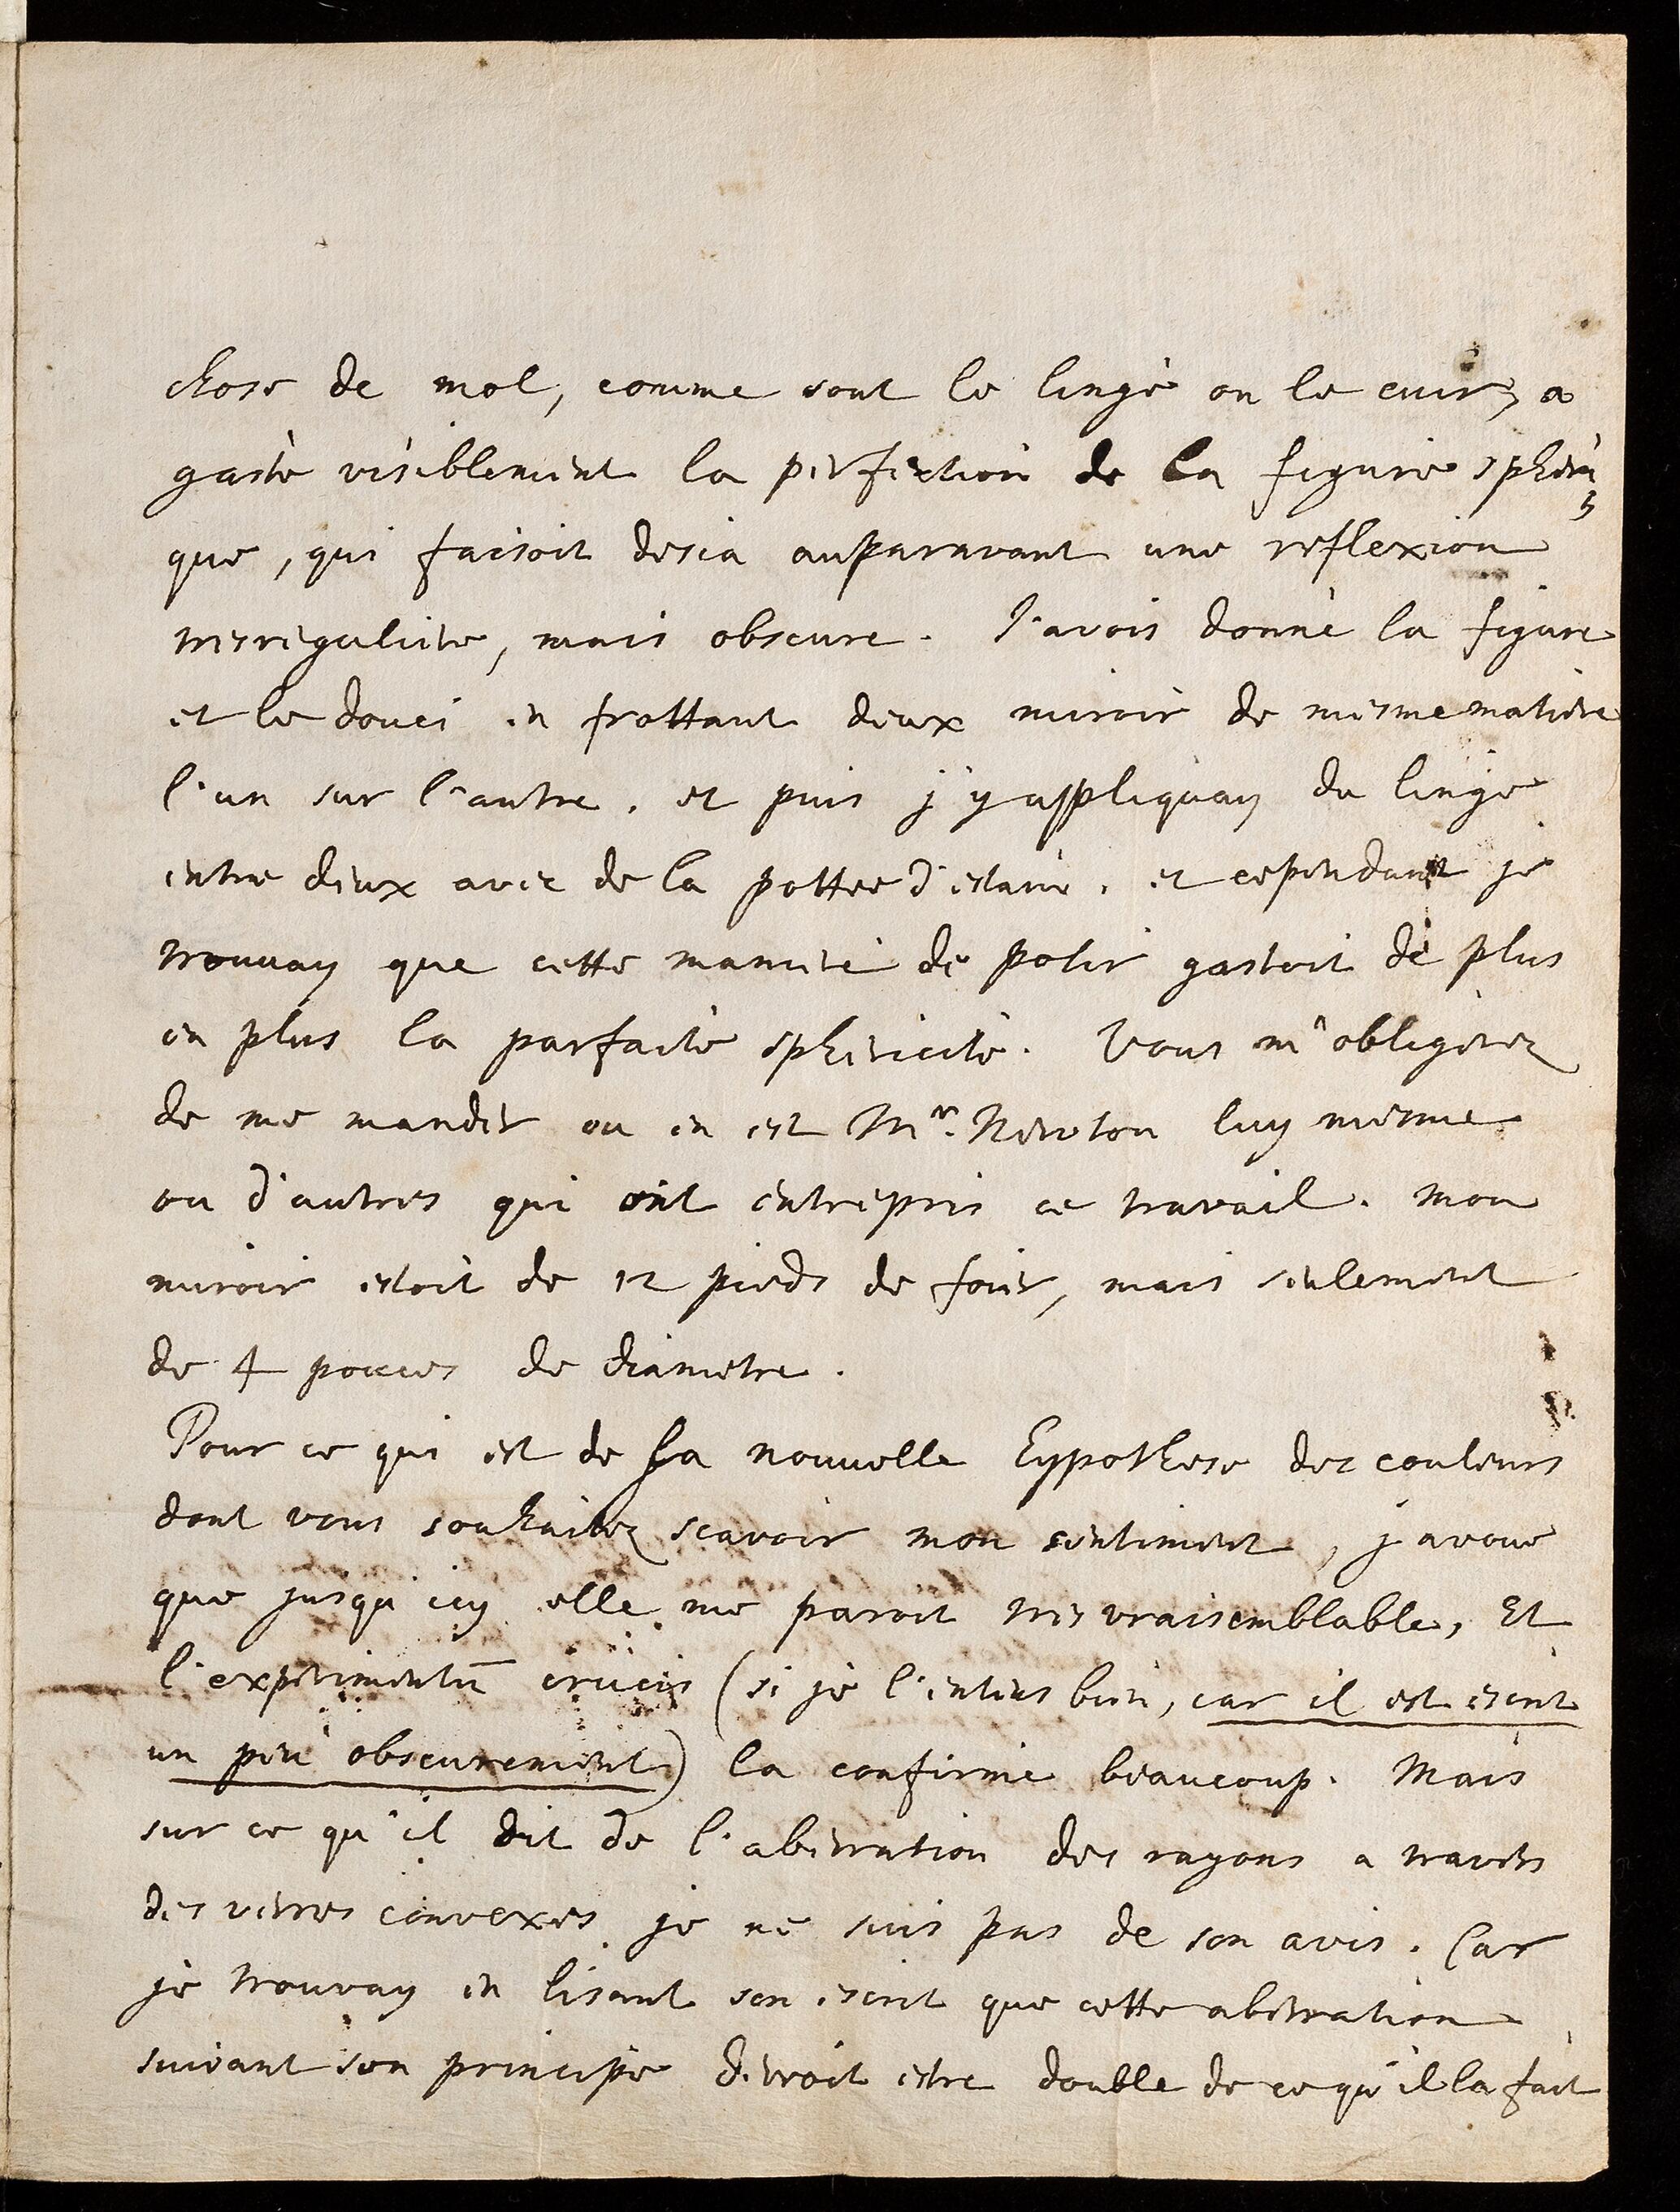 chose de mol, comme sont le linge ou le cuir, a
gastè visiblement la perfection de la figure spheri,
que, qui faisoit desia auparavant une reflexion
tresreguliere, mais obscure. J'avois donnè la figure
et le douci en frottant deux miroir de mesme matiere
l'un sur l'autre. et puis j'y appliquay du linge
entre deux avec de la pottee d'estain. et cependant je
trouvay que cette maniere de polir gastoit de plus
en plus la parfaite sphericitè. Vous m'obligerez
de me mander ou en est Mr. Newton luy mesme
ou d'autres qui ont entrepris ce travail. mon
miroir estoit de 12 pieds de foier, mais seulement
de 4 pouces de diametre.
Pour ce qui est de sa nouvelle hypothese des couleurs
dont vous souhaitez scavoir mon sentiment, j'avoue
que jusqu'icy elle me paroit tres vraisemblable, Et
l'experimentū crucis (si je l'entens bien, car il est escrit
un peu obscurement) la confirme beaucoup. Mais
sur ce qu'il dit de l'aberration des rayons a travers
des verres convexes je ne suis pas de son avis. Car
je trouvay en lisant son escrit que cette aberration
suivant son principe devroit estre double de ce qu'il la fait